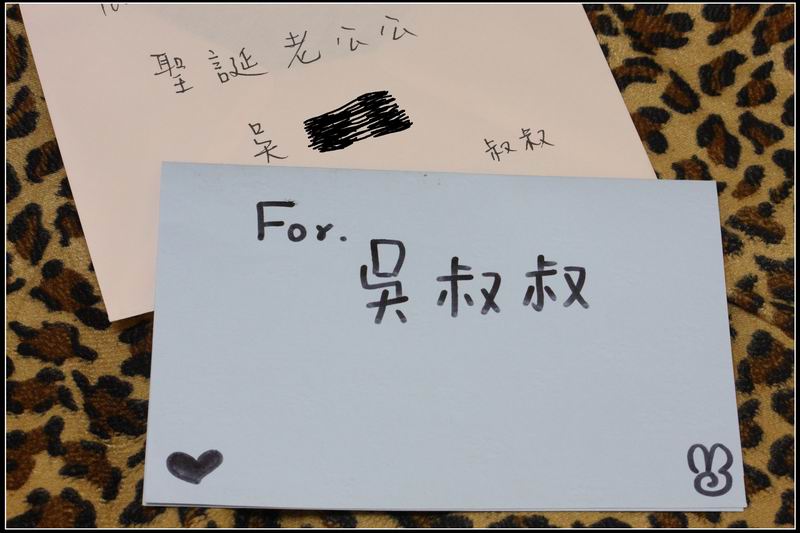 聖誕老公公
吳 叔叔
For.
吳叔叔